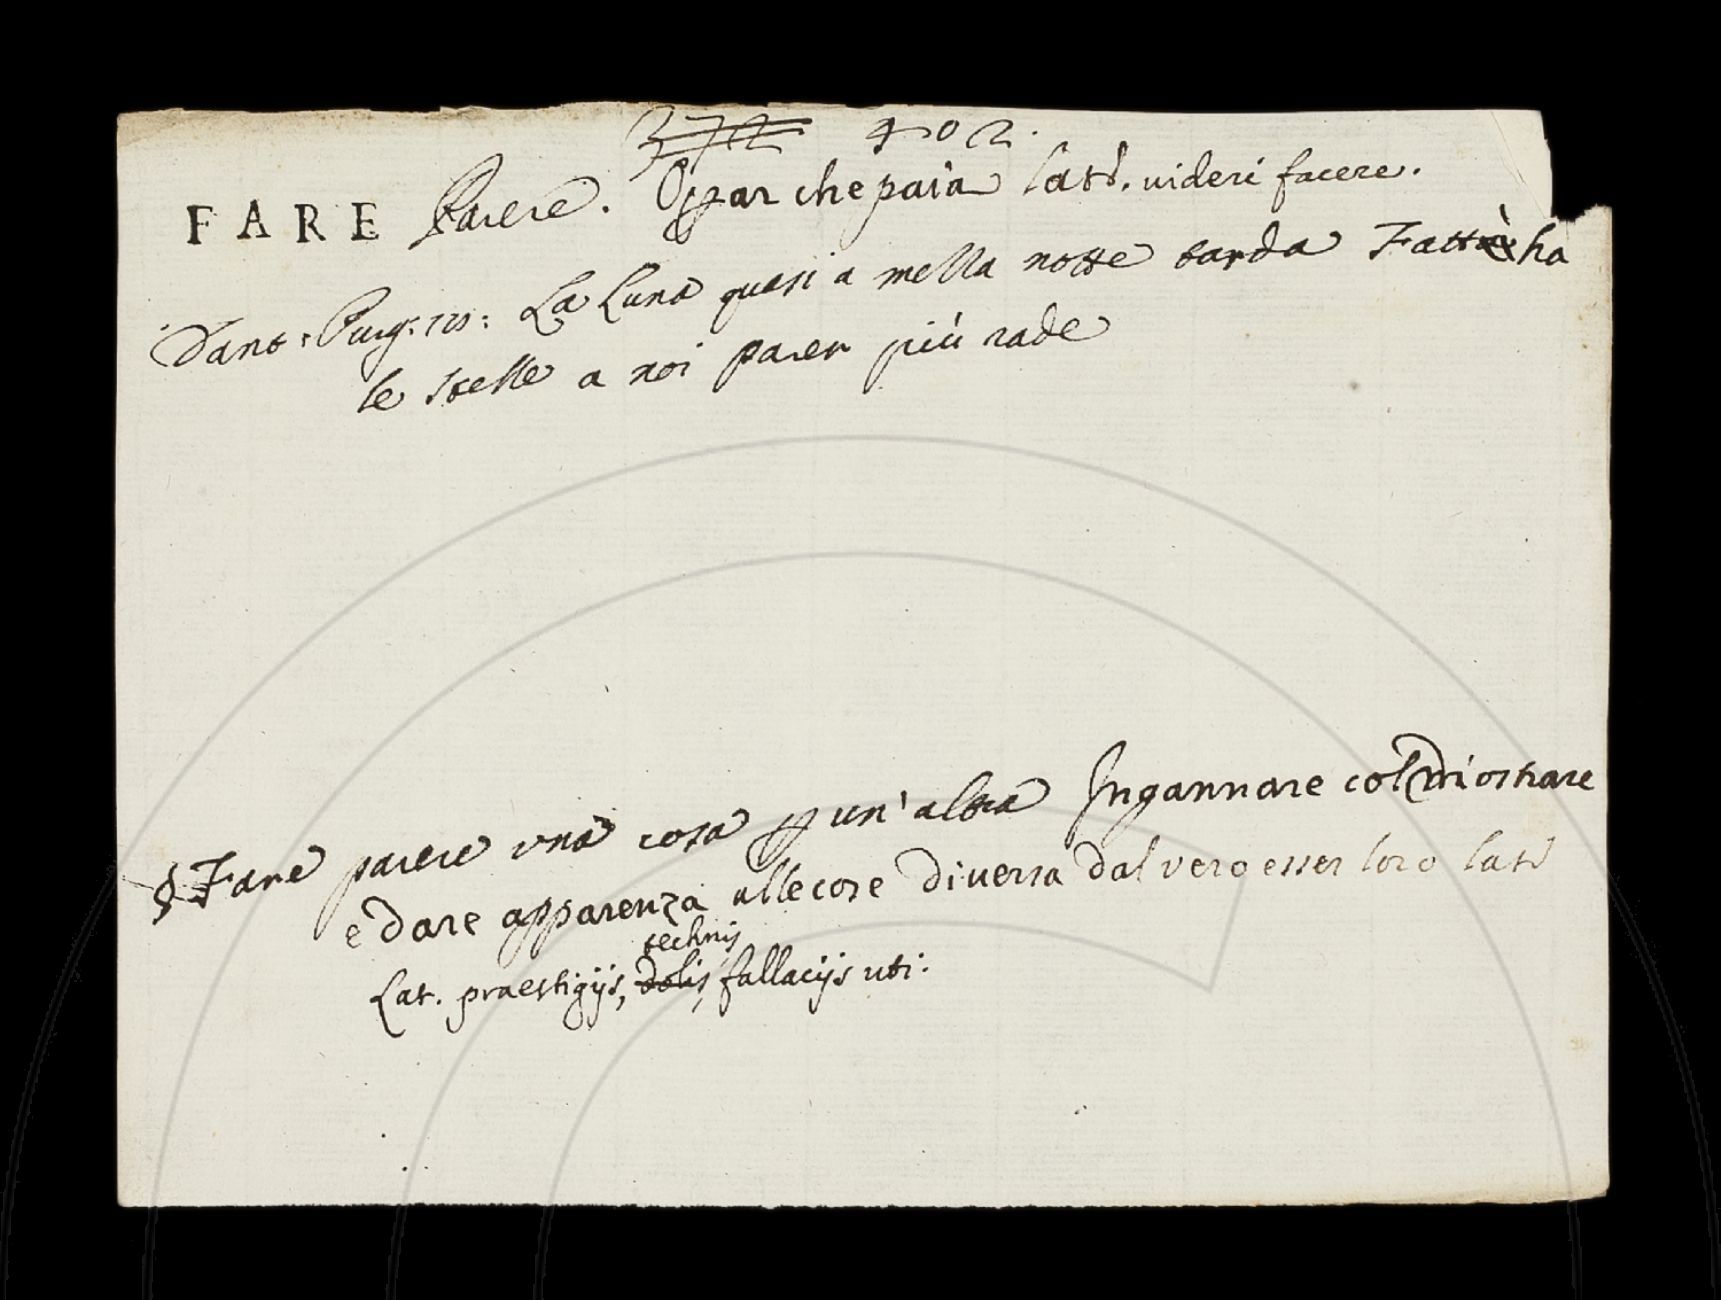 372 402.
FARE Parere. Oprar che paia Latt. videri facere.
Dant: Purg: La Luna quasi a mezza notte tarda Fatto ha
le stelle a noi parer più rade
§ Fare parere una cosa p un' altra Ingannare col mostrare
e Dare apparenza alle cose Diversa Dal vero esser loro Lat
technis
Lat. praestigijs, dolis, fallacijs uti.